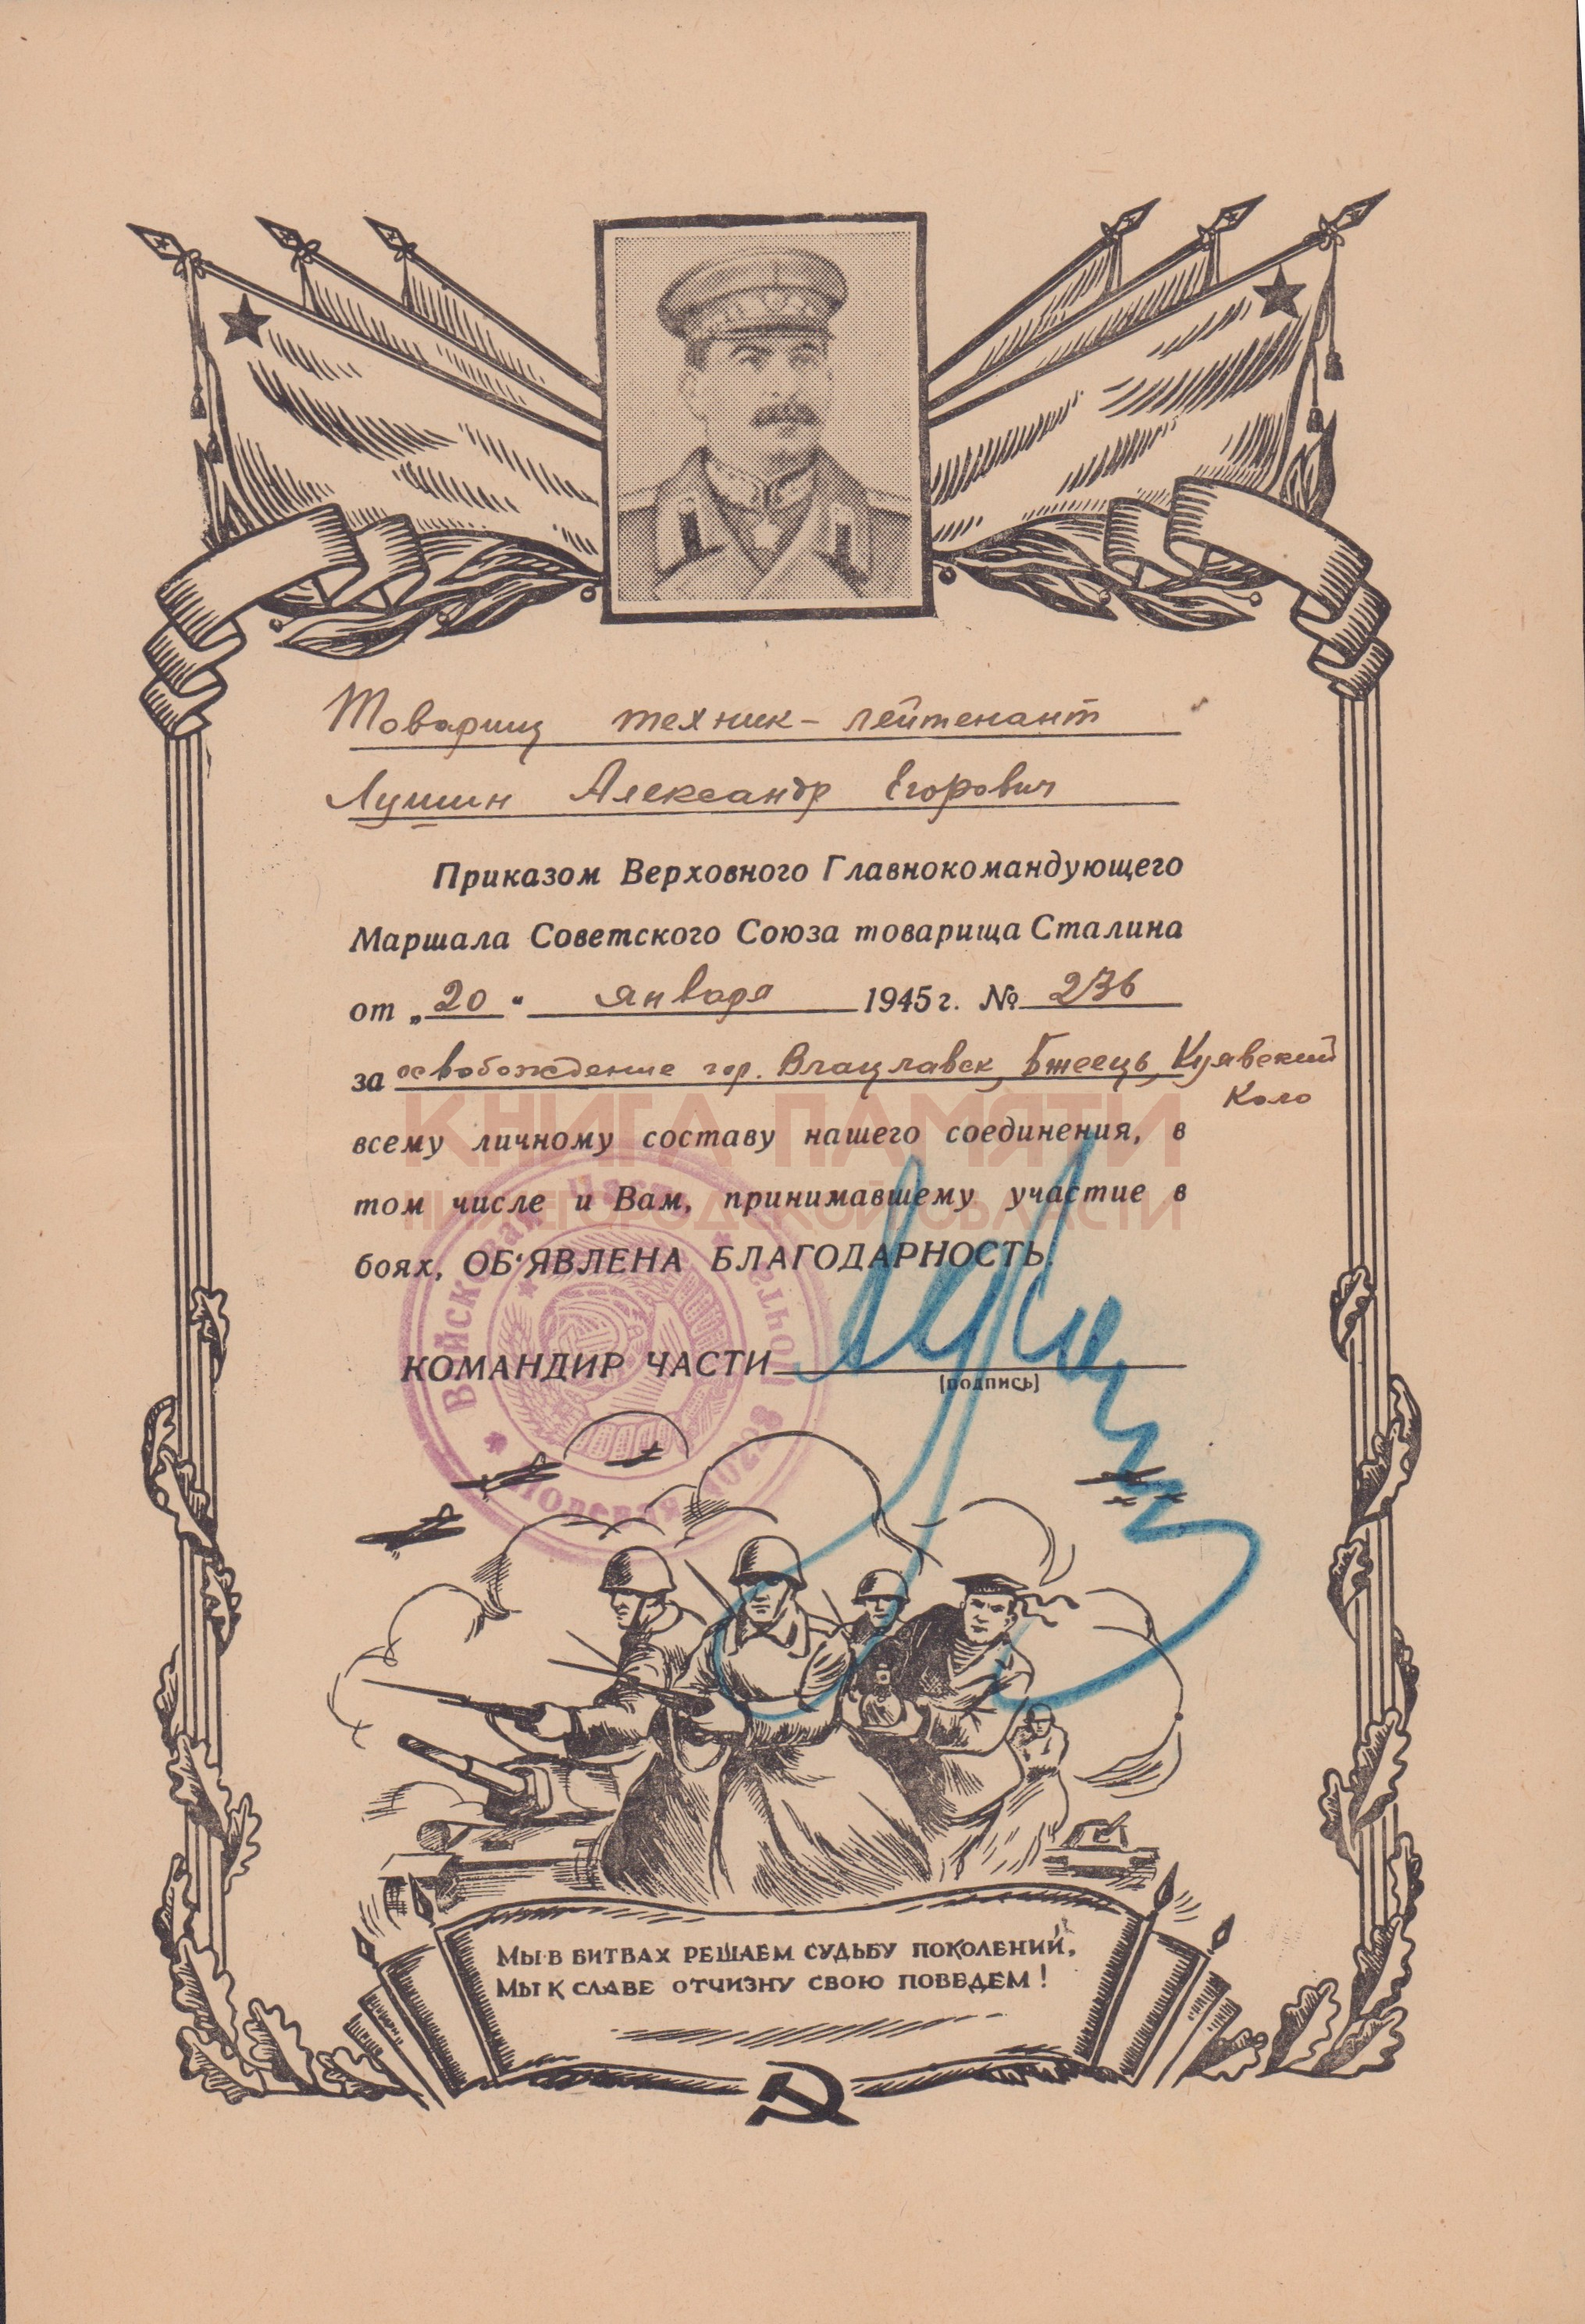 Товарищ техник-лейтенант
Лушин Александр Егорович
Приказом Верховного Главнокомандующего
Маршала Советского Союза товарища Сталина
от „20“ января 1945 г. № 236
за освобождение гор. Влацлавск, Бжесць, Куявский
Коло
КНИГА ПАМЯТИ
всему личному составу нашего соединения, в
НИЖЕГОРОДСКОЙ ОБЛАСТИ
том числе и Вам, принимавшему участие в
боях, ОБ'ЯВЛЕНА БЛАГОДАРНОСТЬ.
Войсковая Часть
Полевая Почта
КОМАНДИР ЧАСТИ
(подпись)
МЫ В БИТВАХ РЕШАЕМ СУДЬБУ ПОКОЛЕНИЙ,
МЫ К СЛАВЕ ОТЧИЗНУ СВОЮ ПОВЕДЕМ!